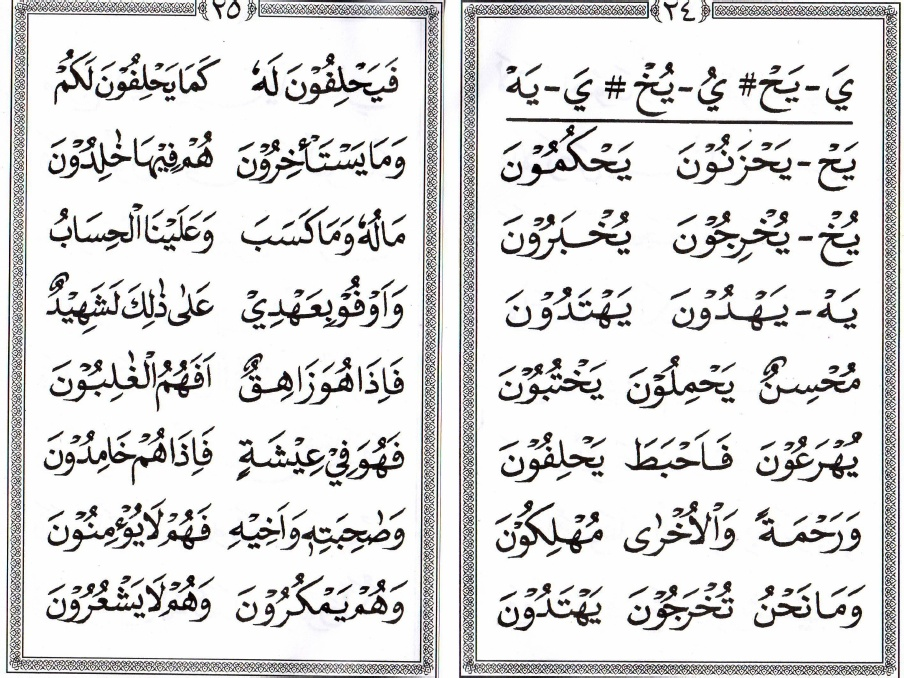 ٢٤
يَ - يَحْ # يُ - يُخْ # يَ - يَهْ
يَحْ - يَحْزَنُوْنَ يَحْكُمُوْنَ
يُخْ - يُخْرِجُوْنَ يُخْبَرُوْنَ
يَهْ - يَهْدُوْنَ يَهْتَدُوْنَ
مُحْسِنٌ يَحْمِلُوْنَ يَخْتَبُوْنَ
يُهْرَعُوْنَ فَاَحْبَطَ يَحْلِفُوْنَ
وَرَحْمَةً وَالْاُخْرٰى مُهْلِكُوْنَ
وَمَا نَحْنُ تُخْرَجُوْنَ يَهْتَدُوْنَ
٢٥
فَيَحْلِفُوْنَ لَهٗ كَمَا يَحْلِفُوْنَ لَكُمْ
وَمَا يَسْتَأْخِرُوْنَ هُمْ فِيْهَا خٰلِدُوْنَ
مَالُهٗ وَمَا كَسَبَ وَعَلَيْنَا الْحِسَابُ
وَاَوْفُوْ بِعَهْدِيْ عَلٰى ذٰلِكَ لَشَهِيْدٌ
فَاِذَا هُوَ زَاهِقٌ اَفَهُمُ الْغٰلِبُوْنَ
فَهُوَ فِيْ عِيْشَةٍ فَاِذَا هُمْ خَامِدُوْنَ
وَصٰحِبَتِهٖ وَاَخِيْهِ فَهُمْ لَا يُوْمِنُوْنَ
وَهُمْ يَمْكُرُوْنَ وَهُمْ لَا يَشْعُرُوْنَ